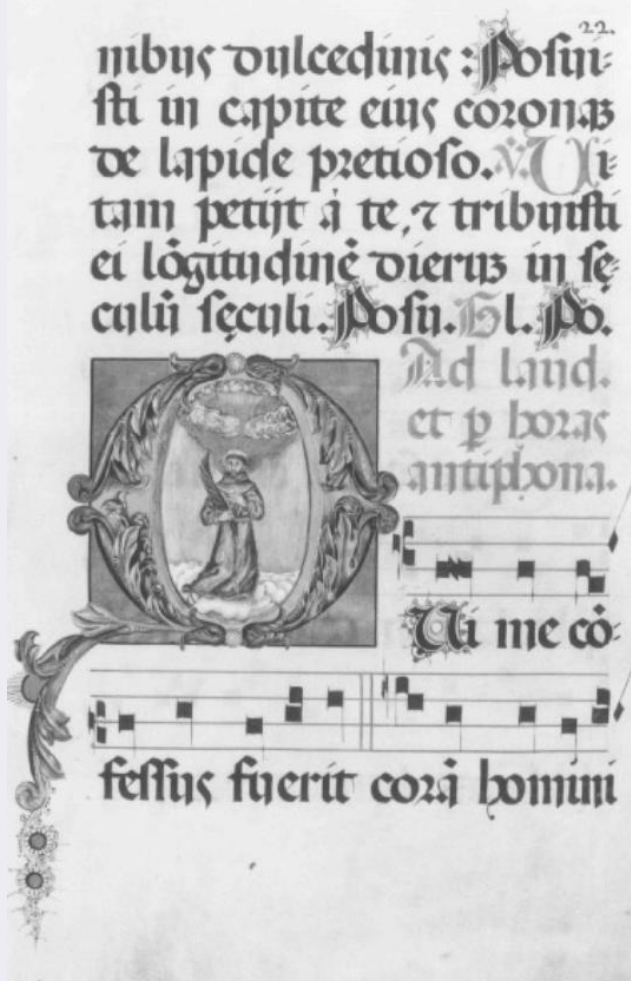 22.
nibus dulcedinis : Posui-
sti in capite eius coronaȝ
de lapide pretioso. ℣. Ui-
tam petijt à te, ⁊ tribuisti
ei lõgitudinẽ dieruȝ in sę-
culũ sęculi. Posu. Gl. Po.
Ad laud.
et p horas
antiphona.
Qui me cõ-
fessus fuerit corã homini